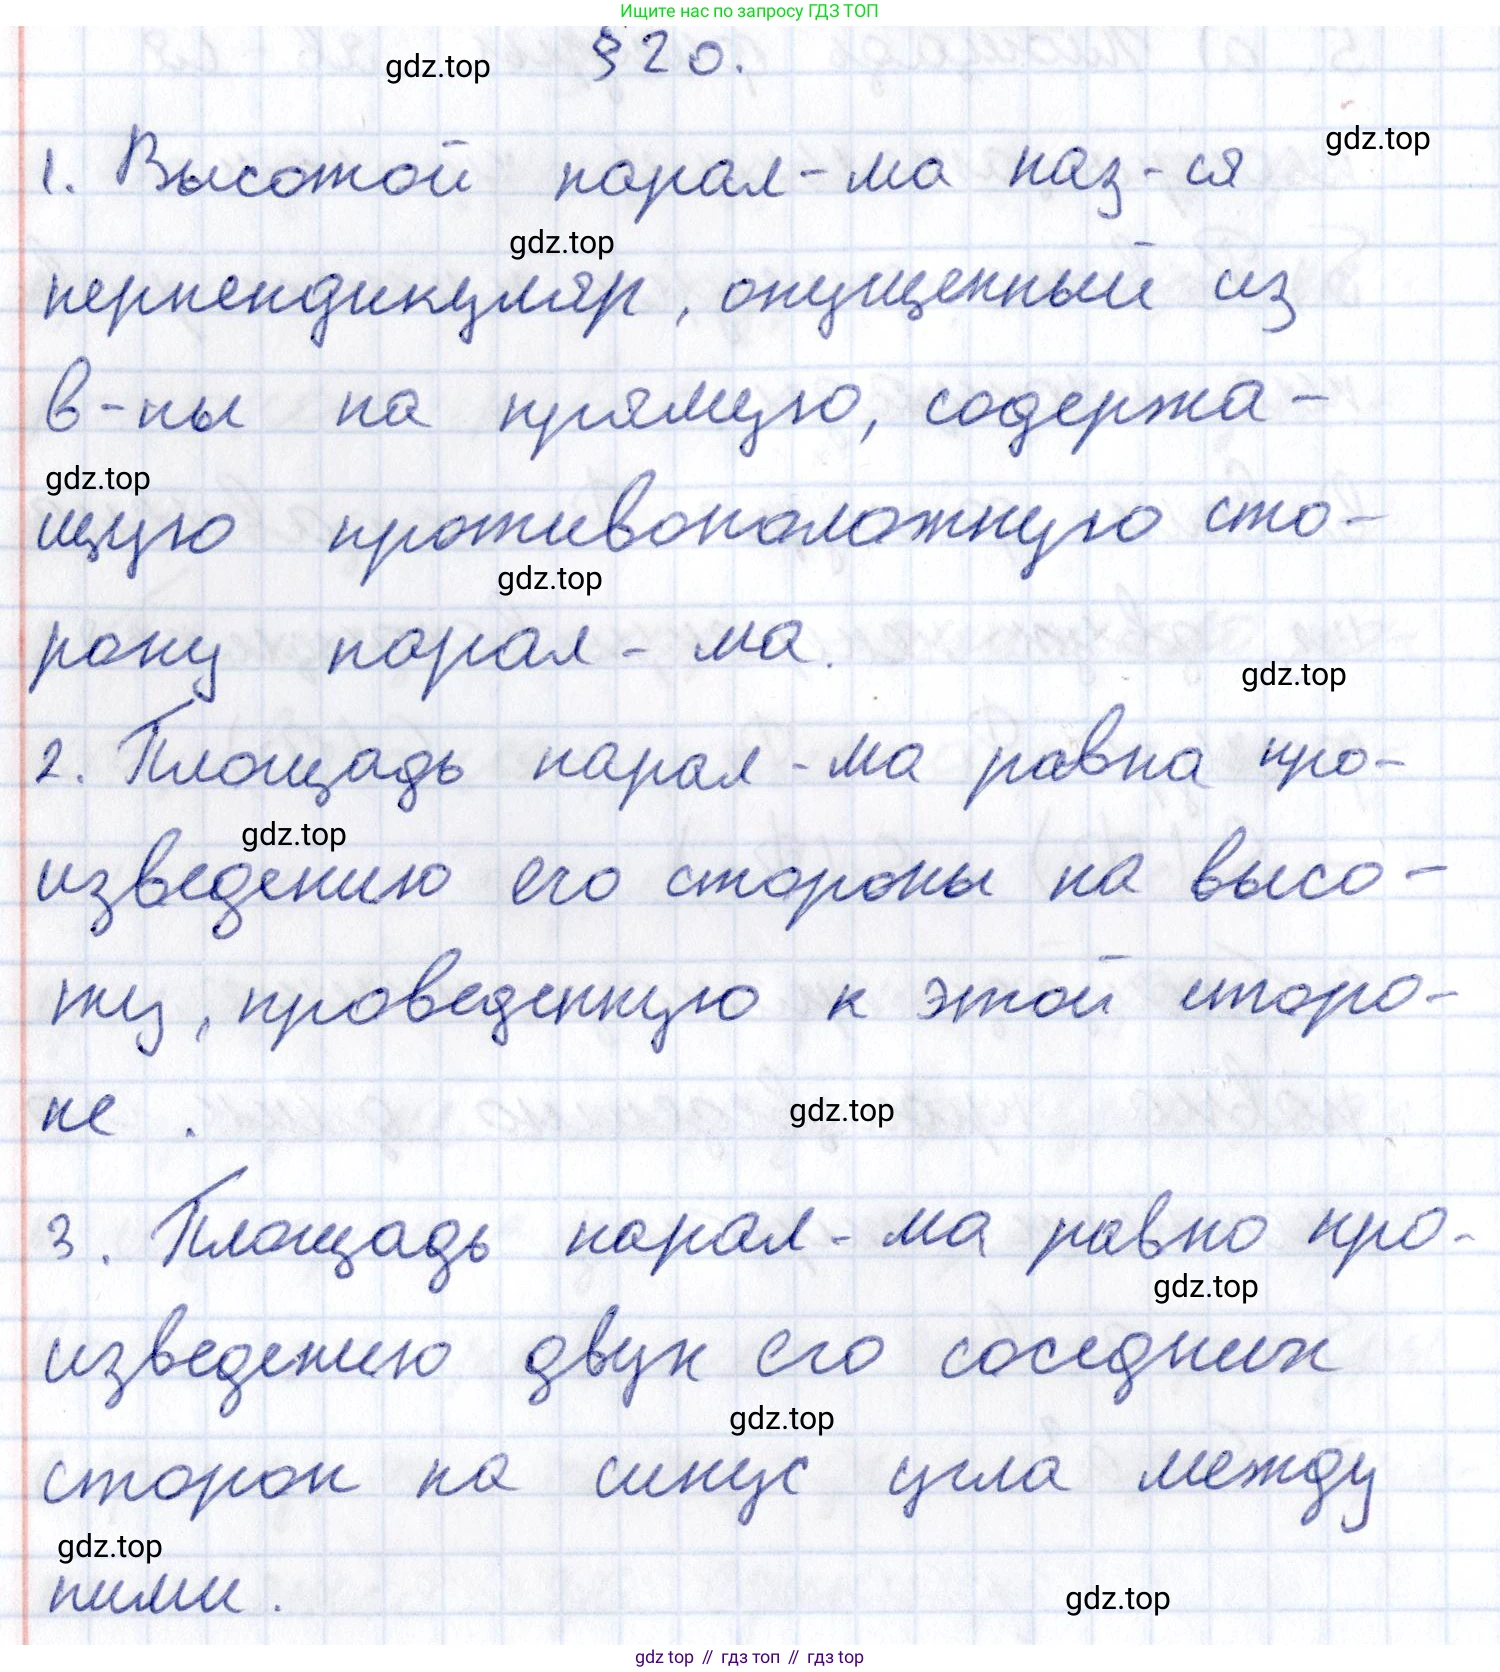 Ищите нас по запросу ГДЗ ТОП
§ 20.
gdz.top
gdz.top
1. Высотой парал-ма наз-ся
gdz.top
перпендикуляр, опущенный из
в-ны на прямую, содержа-
gdz.top
щую противоположную сто-
gdz.top
рону парал-ма.
gdz.top
2. Площадь парал-ма равна про-
gdz.top
изведению его стороны на высо-
ту, проведенную к этой сторо-
не.
gdz.top
3. Площадь парал-ма равно про-
gdz.top
изведению двух его соседних
gdz.top
сторон на синус угла между
gdz.top
ними.
gdz.top
gdz.top // гдз топ // гдз top